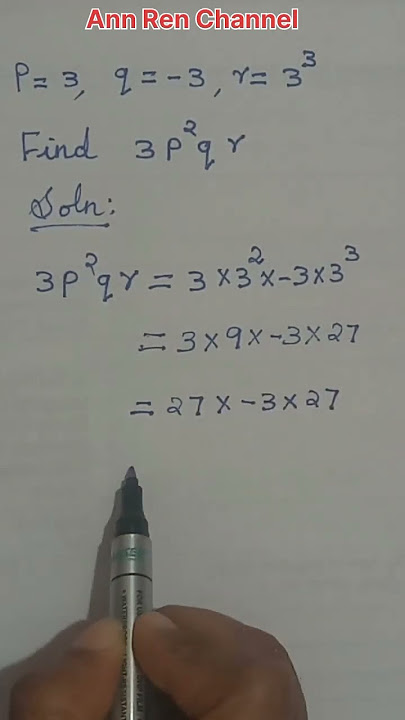 Ann Ren Channel
P = 3, q = -3, r = 3³
Find 3P²qr
Soln:
3P²qr = 3×3²×-3×3³
= 3×9×-3×27
= 27×-3×27